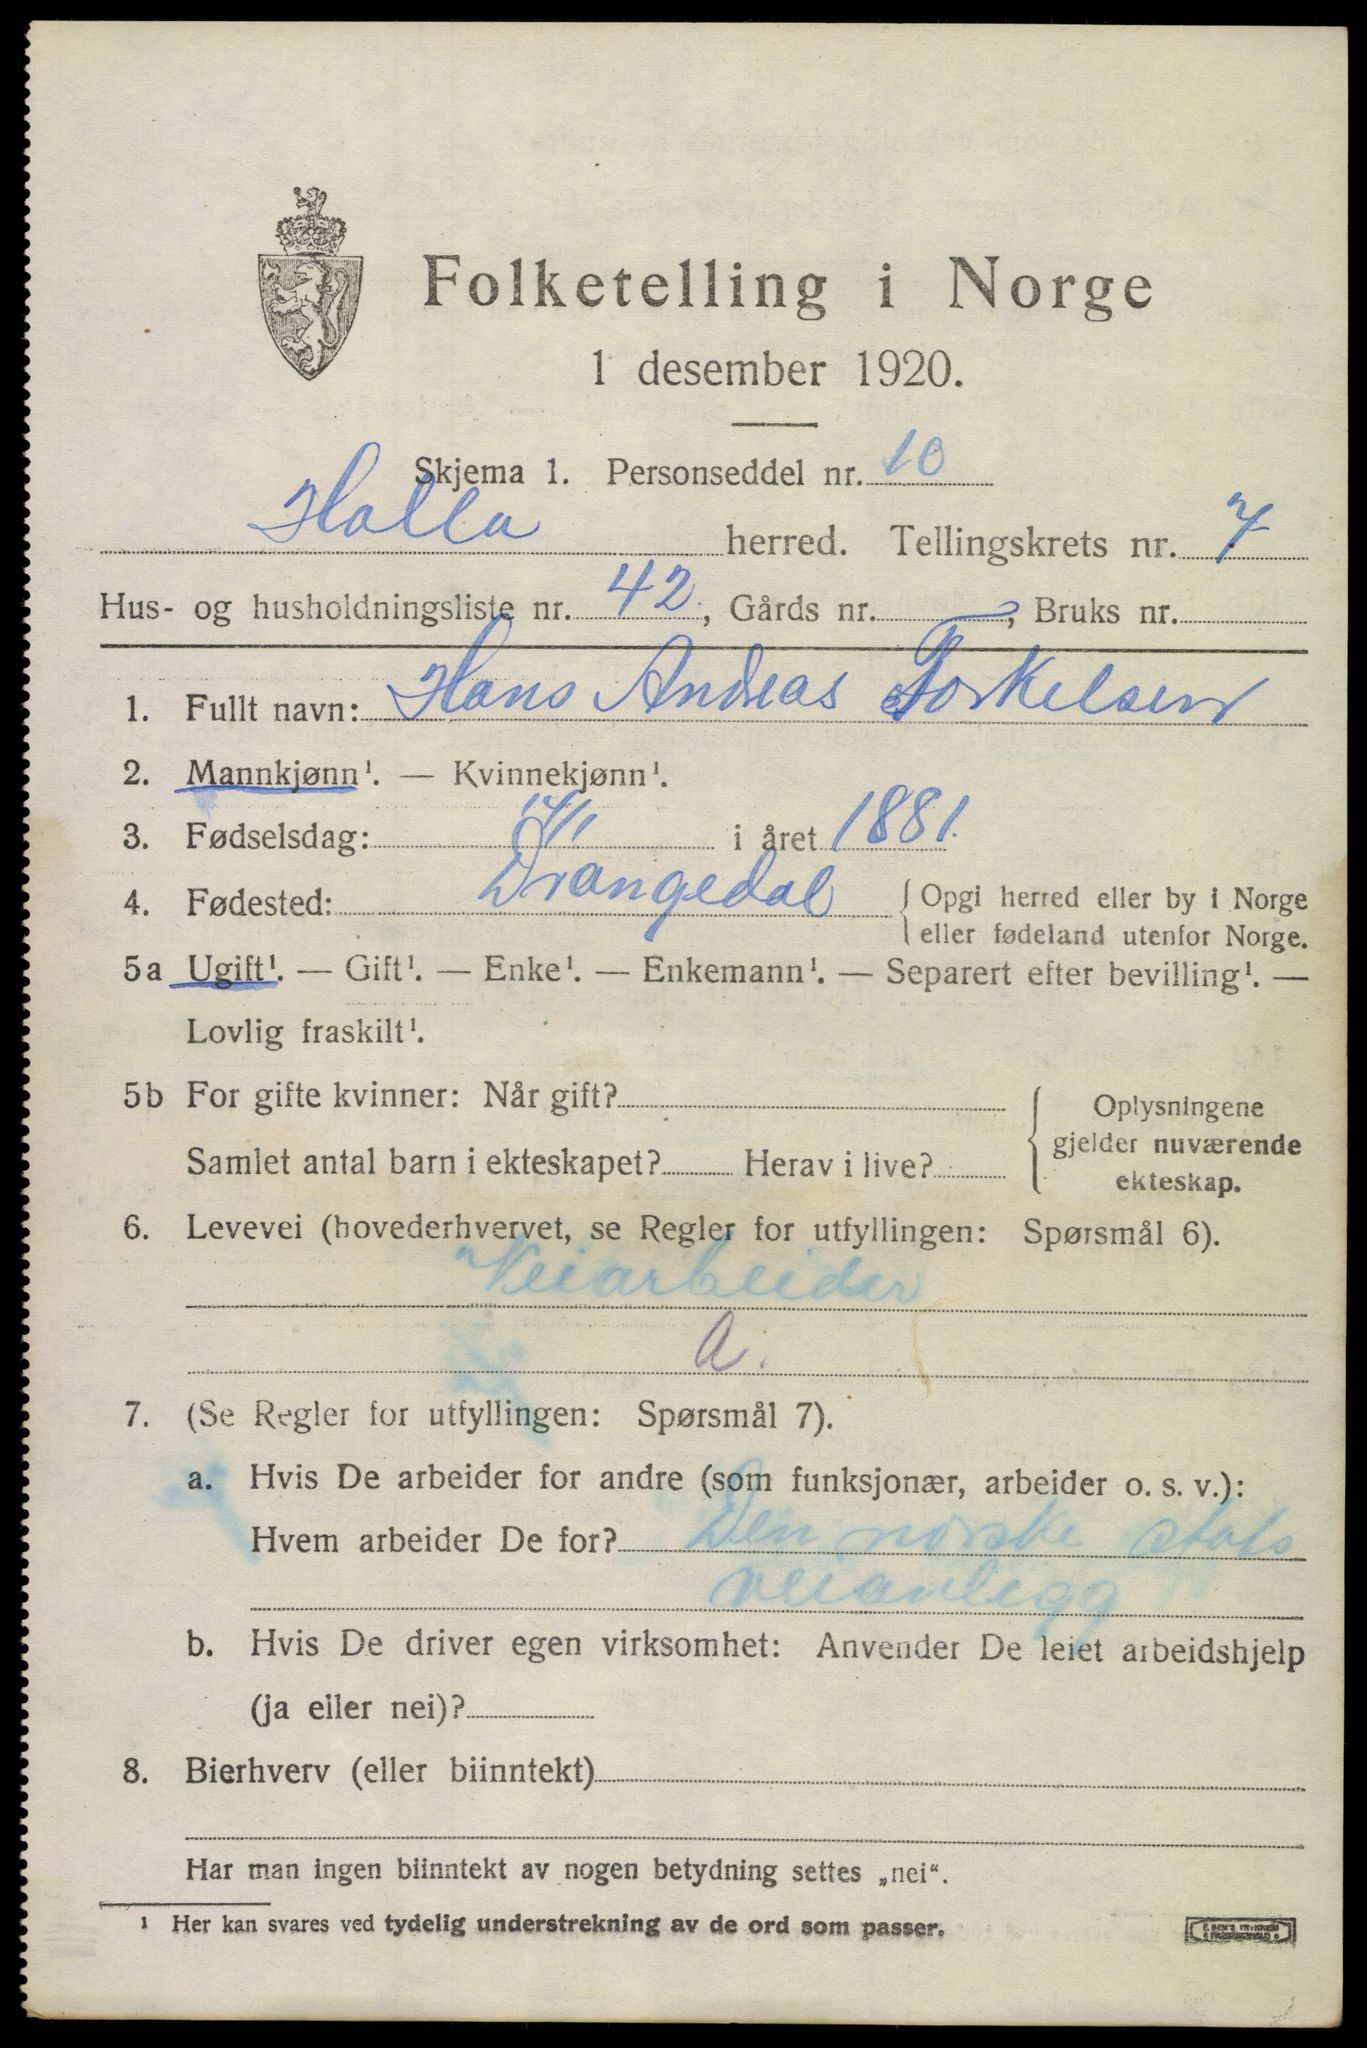 Folketelling i Norge
1 desember 1920.
Skjema 1. Personseddel nr. 10
Holla herred. Tellingskrets nr. 7
Hus- og husholdningsliste nr. 42, Gårds nr. , Bruks nr.
1. Fullt navn: Hans Andreas Torkelsen
2. Mannkjønn¹. — Kvinnekjønn¹.
3. Fødselsdag: i året 1881.
4. Fødested: Drangedal { Opgi herred eller by i Norge
eller fødeland utenfor Norge.
5a Ugift¹. — Gift¹. — Enke¹. — Enkemann¹. — Separert efter bevilling¹. —
Lovlig fraskilt¹.
5b For gifte kvinner: Når gift?
Samlet antal barn i ekteskapet? Herav i live?
{ Oplysningene
gjelder nuværende
ekteskap.
6. Levevei (hovederhvervet, se Regler for utfyllingen: Spørsmål 6).
Veiarbeider
a.
7. (Se Regler for utfyllingen: Spørsmål 7).
a. Hvis De arbeider for andre (som funksjonær, arbeider o. s. v.):
Hvem arbeider De for? Den norske stats
veianlegg
b. Hvis De driver egen virksomhet: Anvender De leiet arbeidshjelp
(ja eller nei)?
8. Bierhverv (eller biinntekt)
Har man ingen biinntekt av nogen betydning settes „nei“.
¹ Her kan svares ved tydelig understrekning av de ord som passer.